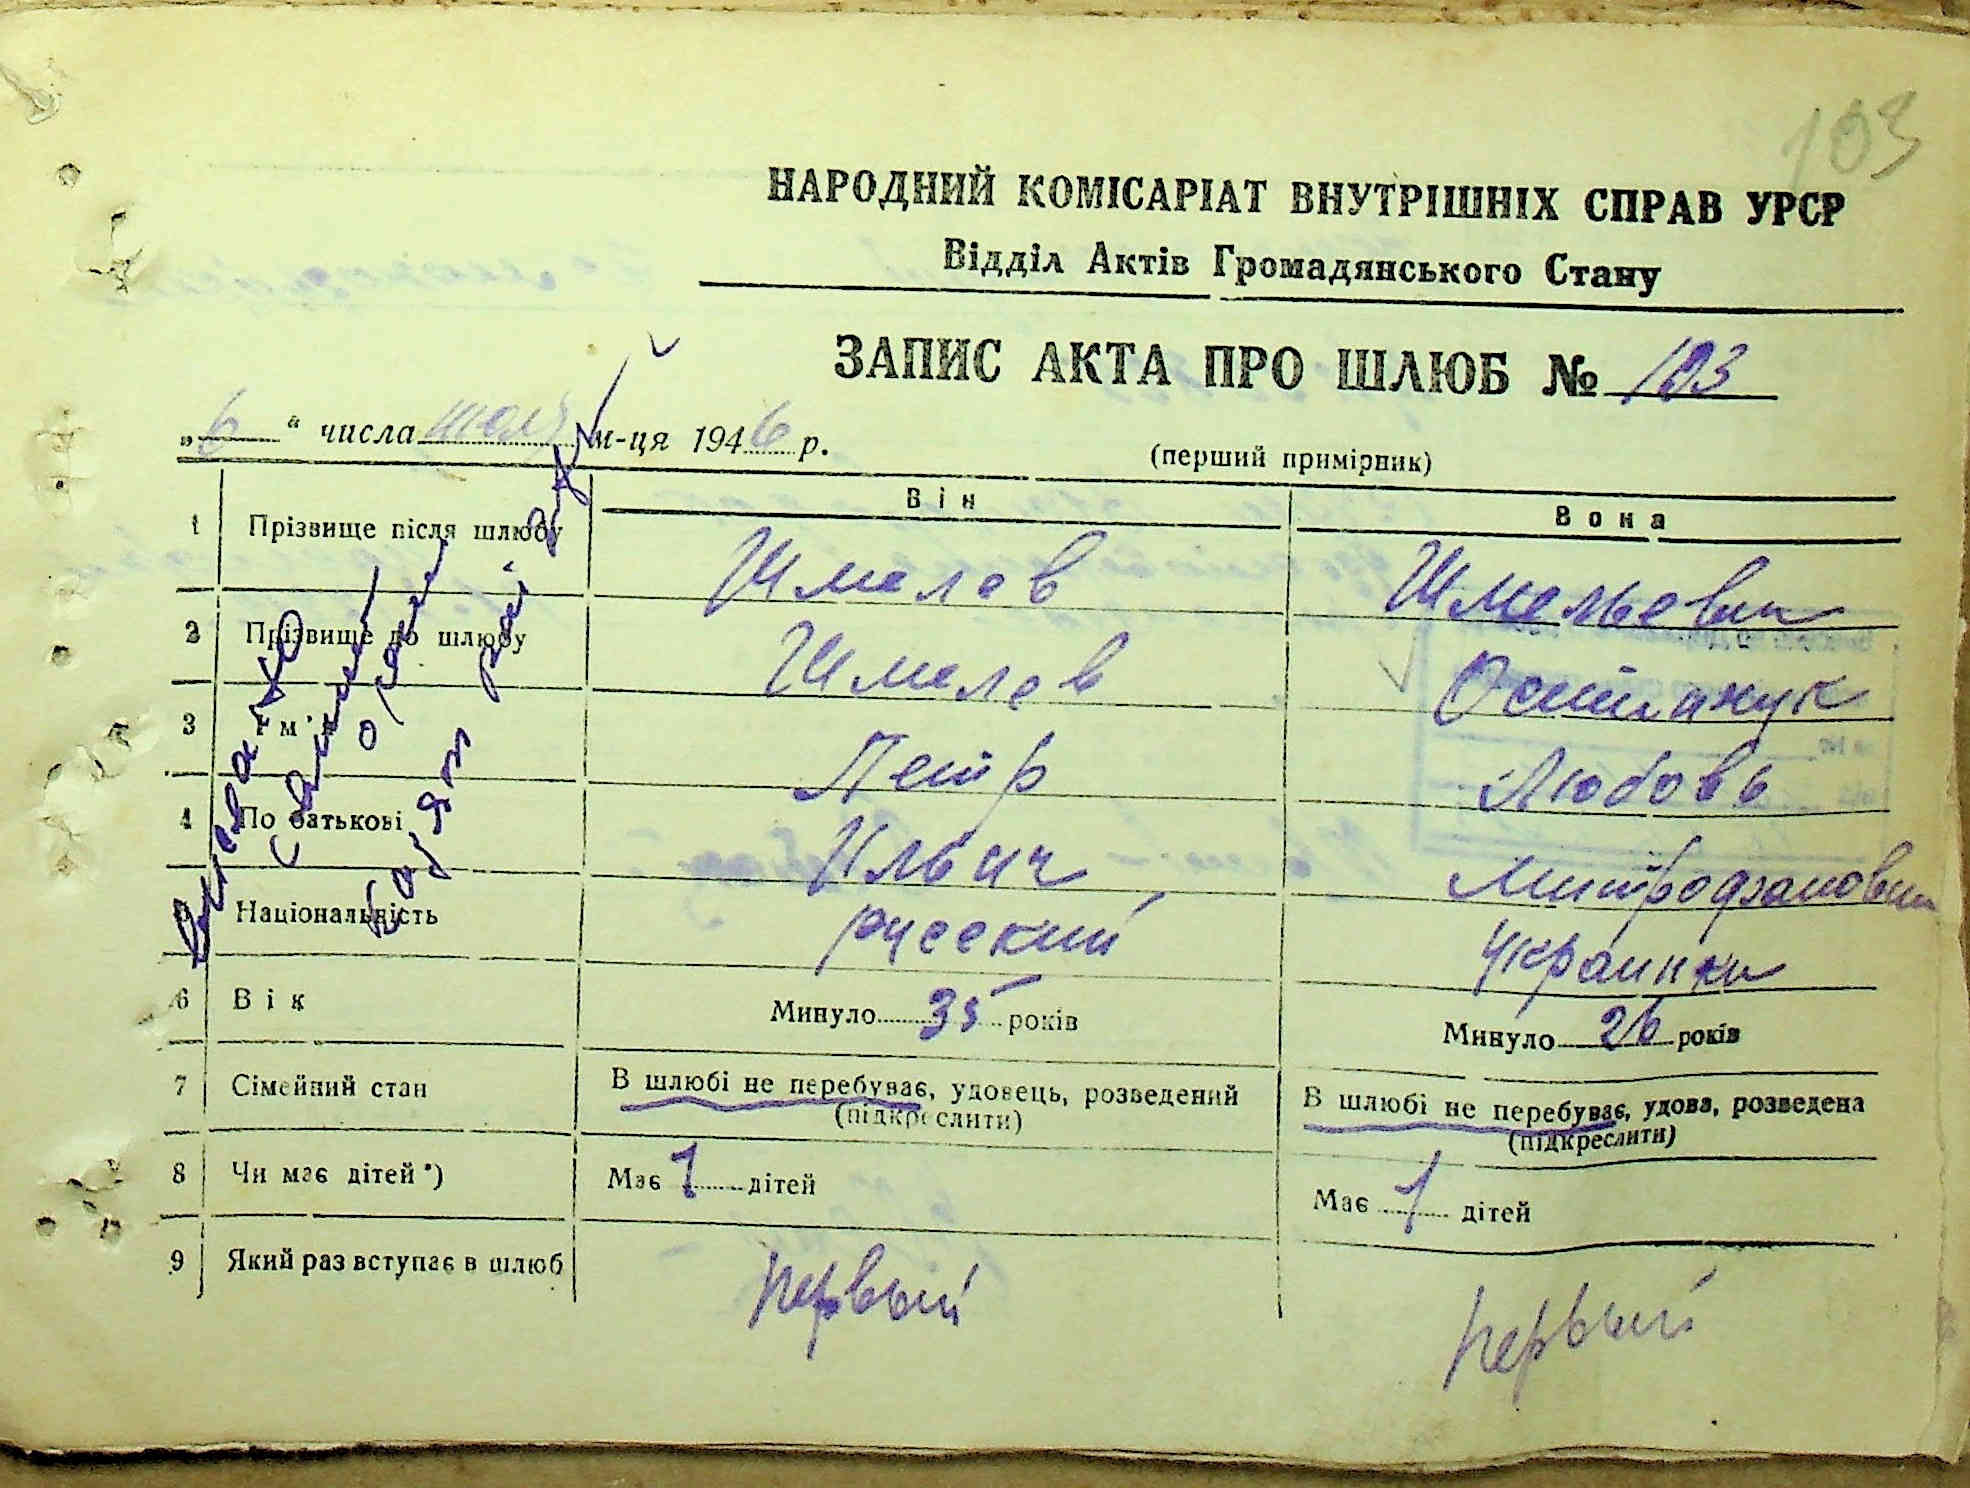 103
НАРОДНИЙ КОМІСАРІАТ ВНУТРІШНІХ СПРАВ УРСР
Відділ Актів Громадянського Стану
ЗАПИС АКТА ПРО ШЛЮБ № 103
„ 6 “ числа м-ця 1946 р.
(перший примірник)
Він Вона
1 Прізвище після шлюбу Шмелев
2 Прізвище до шлюбу Шмелев Остапчук
3 Ім'я Петр Любовь
4 По батькові Ильич
5 Національність русский Украинка
6 Вік Минуло 35 років Минуло 26 років
7 Сімейний стан В шлюбі не перебуває, удовець, розведений В шлюбі не перебуває, удова, розведена
(підкреслити) (підкреслити)
8 Чи має дітей*) Має 1 дітей Має 1 дітей
9 Який раз вступає в шлюб первый первый